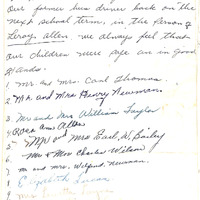 our former bus driver back on the
next school term, in the person of
Leroy Allen we always feel that
our children were safe an in good
Hands.
1. Mr and Mrs. Carl Thomas.
2. Mr and Mrs Henry Newman.
3. Mr and Mrs William Taylor
4. Allen
5. Mr and Mrs Earl W. Bailey
6. Mr & Mrs Charles Wilson
7. M and Mrs. Newman.
8. Elizabeth
9.